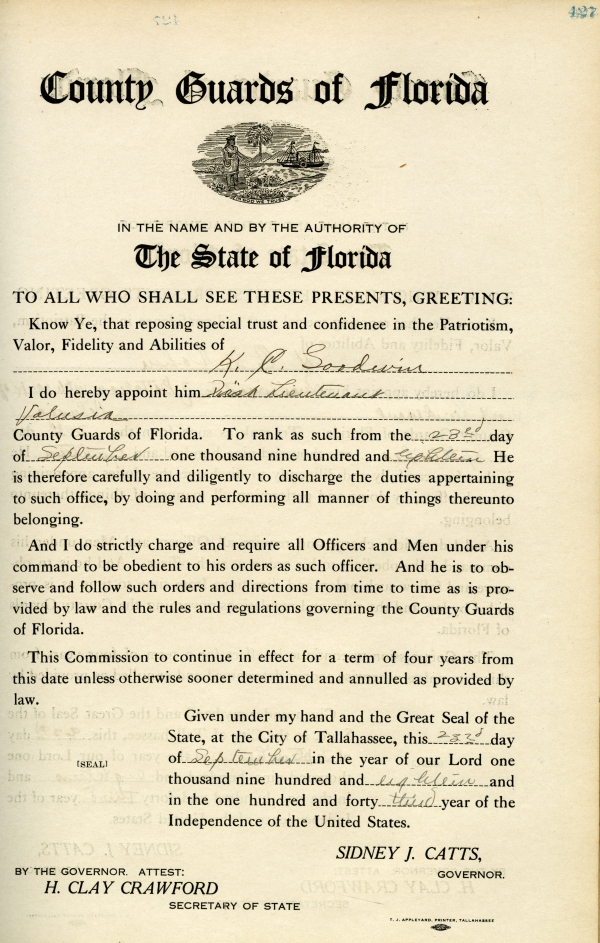 427
County Guards of Florida
IN GOD WE TRUST
IN THE NAME AND BY THE AUTHORITY OF
The State of Florida
TO ALL WHO SHALL SEE THESE PRESENTS, GREETING:
Know Ye, that reposing special trust and confidence in the Patriotism,
Valor, Fidelity and Abilities of
K. C. Goodwin
I do hereby appoint him Lieutenant
Volusia
County Guards of Florida. To rank as such from the 23rd day
of September one thousand nine hundred and eighteen He
is therefore carefully and diligently to discharge the duties appertaining
to such office, by doing and performing all manner of things thereunto
belonging.
And I do strictly charge and require all Officers and Men under his
command to be obedient to his orders as such officer. And he is to ob-
serve and follow such orders and directions from time to time as is pro-
vided by law and the rules and regulations governing the County Guards
of Florida.
This Commission to continue in effect for a term of four years from
this date unless otherwise sooner determined and annulled as provided by
law.
Given under my hand and the Great Seal of the
State, at the City of Tallahassee, this 23rd day
of September in the year of our Lord one
[SEAL]
thousand nine hundred and eighteen and
in the one hundred and forty third year of the
Independence of the United States.
SIDNEY J. CATTS,
GOVERNOR.
BY THE GOVERNOR. ATTEST:
H. CLAY CRAWFORD
SECRETARY OF STATE
T. J. APPLEYARD, PRINTER, TALLAHASSEE